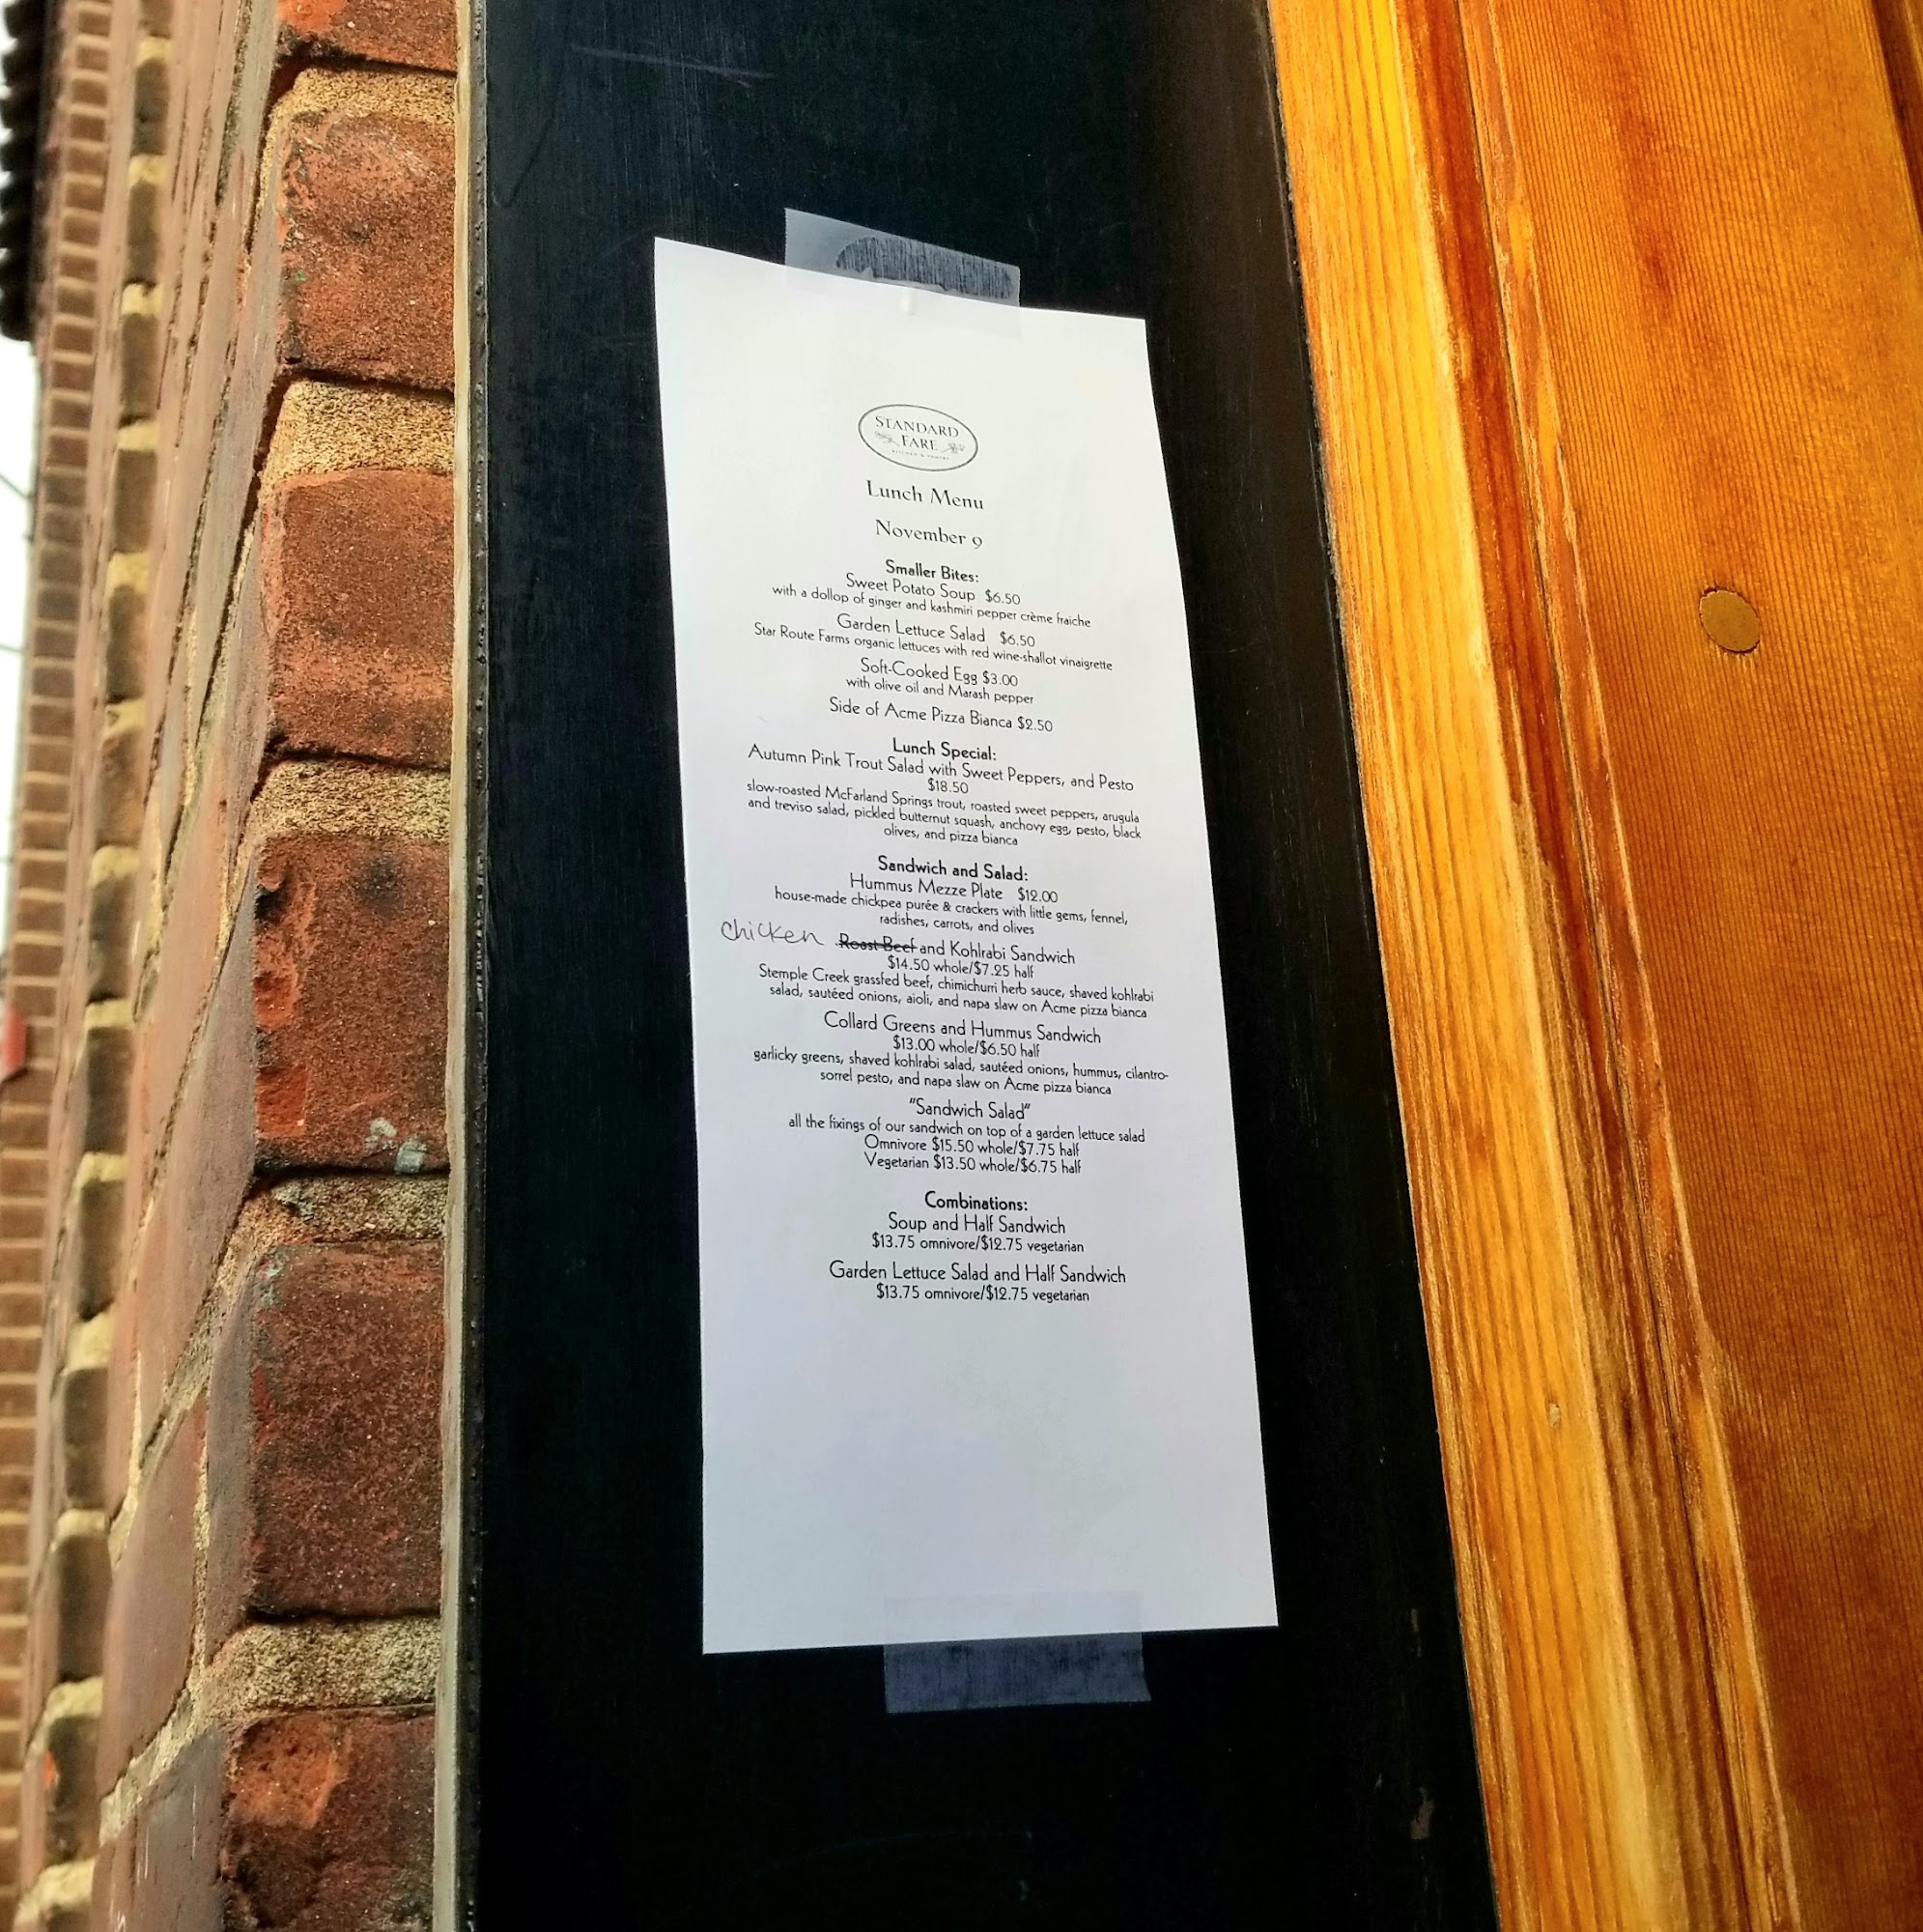 STANDARD
FARE
KITCHEN & PANTRY
Lunch Menu
November 9
Smaller Bites:
Sweet Potato Soup $6.50
with a dollop of ginger and kashmiri pepper crème fraiche
Garden Lettuce Salad $6.50
Star Route Farms organic lettuces with red wine-shallot vinaigrette
Soft-Cooked Egg $3.00
with olive oil and Marash pepper
Side of Acme Pizza Bianca $2.50
Lunch Special:
Autumn Pink Trout Salad with Sweet Peppers, and Pesto
$18.50
slow-roasted McFarland Springs trout, roasted sweet peppers, arugula
and treviso salad, pickled butternut squash, anchovy egg, pesto, black
olives, and pizza bianca
Sandwich and Salad:
Hummus Mezze Plate $12.00
house-made chickpea purée & crackers with little gems, fennel,
radishes, carrots, and olives
chicken Roast Beef and Kohlrabi Sandwich
$14.50 whole/$7.25 half
Stemple Creek grassfed beef, chimichurri herb sauce, shaved kohlrabi
salad, sautéed onions, aioli, and napa slaw on Acme pizza bianca
Collard Greens and Hummus Sandwich
$13.00 whole/$6.50 half
garlicky greens, shaved kohlrabi salad, sautéed onions, hummus, cilantro-
sorrel pesto, and napa slaw on Acme pizza bianca
"Sandwich Salad"
all the fixings of our sandwich on top of a garden lettuce salad
Omnivore $15.50 whole/$7.75 half
Vegetarian $13.50 whole/$6.75 half
Combinations:
Soup and Half Sandwich
$13.75 omnivore/$12.75 vegetarian
Garden Lettuce Salad and Half Sandwich
$13.75 omnivore/$12.75 vegetarian